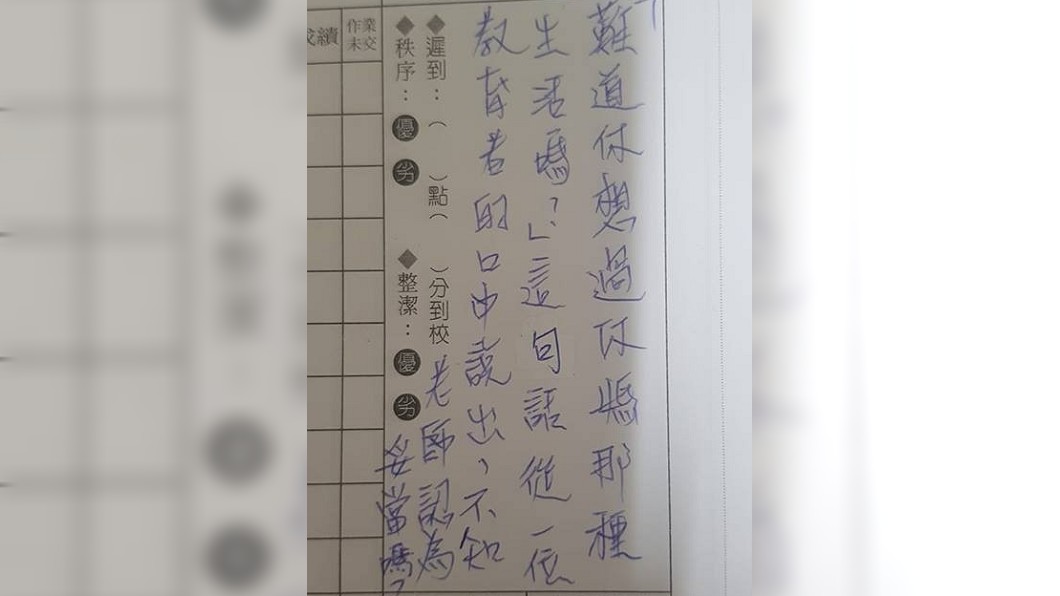 「難道你想過你媽那種
生活嗎?」這句話從一位
教育者的口中說出,不知
老師認為
妥當嗎?
◆遲到:( )點( )分到校
◆秩序:優 劣 ◆整潔:優 劣
作業未交
成績